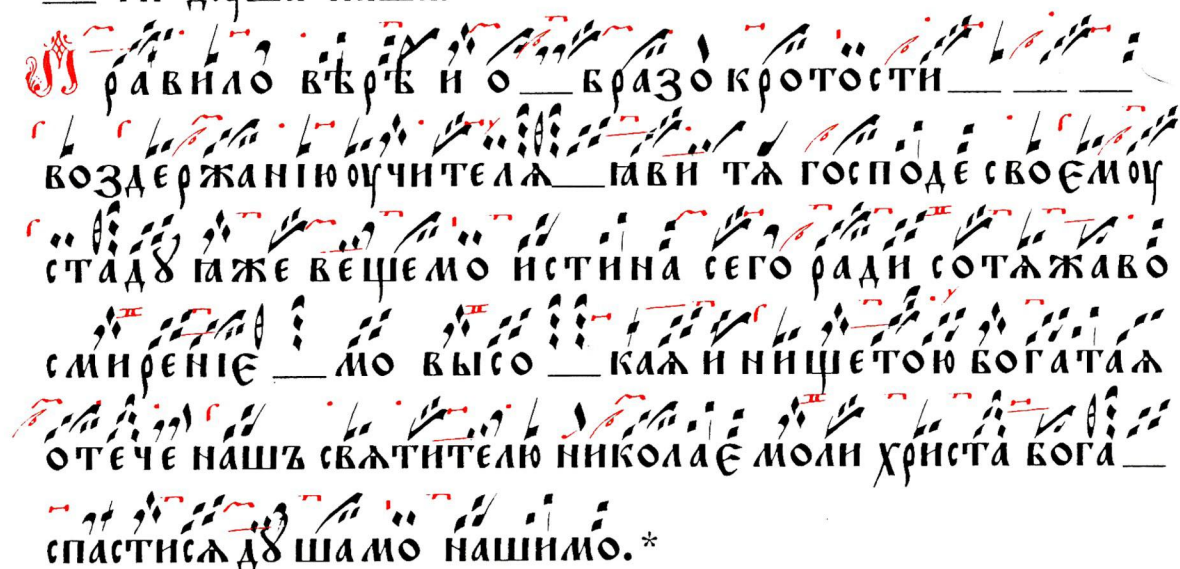 Правило вѣрѣ и о__бразо кротости__ __ __
воздержанїю оучителя__ ꙗви тѧ господе своемоу
стадꙋ ꙗже вещемо истина сего ради сотѧжаво
смиренїе __мо высо__каѧ и нищетою богатаѧ
отече нашъ свѧтителю николае моли христа бога__
спастисѧ дꙋшамо нашимо.*